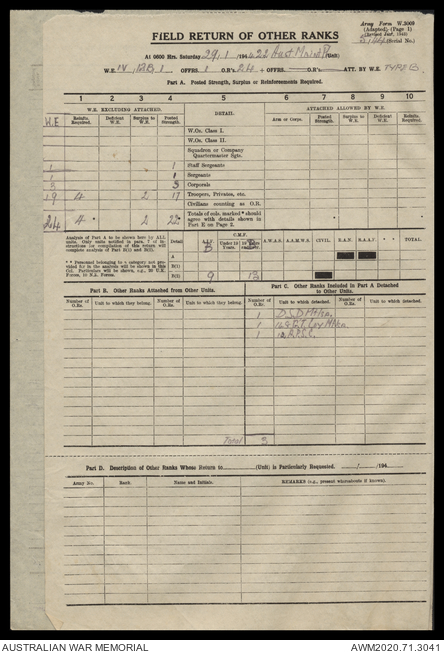 Army Form W.3009
(Adapted) (Page 1)
(Revised Jan., 1944)
(Serial No.)
FIELD RETURN OF OTHER RANKS
At 0600 Hrs. Saturday 29/1 /194 (Unit)
W.E. OFFRS. 1 O.R's. 24 + OFFRS. O.R's. ATT. BY W.E. TYPE B
Part A. Posted Strength, Surplus or Reinforcements Required.
1 2 3 4 5 6 7 8 9 10
W.E. EXCLUDING ATTACHED. DETAIL. ATTACHED ALLOWED BY W.E.
W.E Reinfts. Required. Deficient W.E. Surplus to W.E. Posted Strength. Arm or Corps. Posted Strength. Deficient W.E. Surplus to W.E. Reinfts. Required.
W.Os. Class I.
W.Os. Class II.
Squadron or Company Quartermaster Sgts.
1 1 Staff Sergeants
1 1 Sergeants
3 3 Corporals
19 4 2 17 Troopers, Privates, etc.
Civilians counting as O.R.
24 4 2 22 Totals of cols. marked * should agree with details shown in Part E on Page 2.
Analysis of Part A to be shown here by ALL units. Only units notified in para. 7 of instructions for compilation of this return will complete analysis of Part B(1) and B(2).
Detail A.I.F. C.M.F. A.W.A.S. A.A.M.W.S. CIVIL R.A.N. R.A.A.F. TOTAL.
A
B(1)
B(2) 9 13
Part B. Other Ranks Attached from Other Units.
Part C. Other Ranks Included in Part A Detached to Other Units.
Number of O.Rs. Unit to which they belong. Number of O.Rs. Unit to which they belong. Number of O.Rs. Unit to which detached. Number of O.Rs. Unit to which detached.
1 DSD Mtka.
1
1
Total 3
Part D. Description of Other Ranks Whose Return to (Unit) is Particularly Requested. / /194
Army No. Rank. Name and Initials. REMARKS (e.g., present whereabouts if known).
AUSTRALIAN WAR MEMORIAL
AWM2020.71.3041